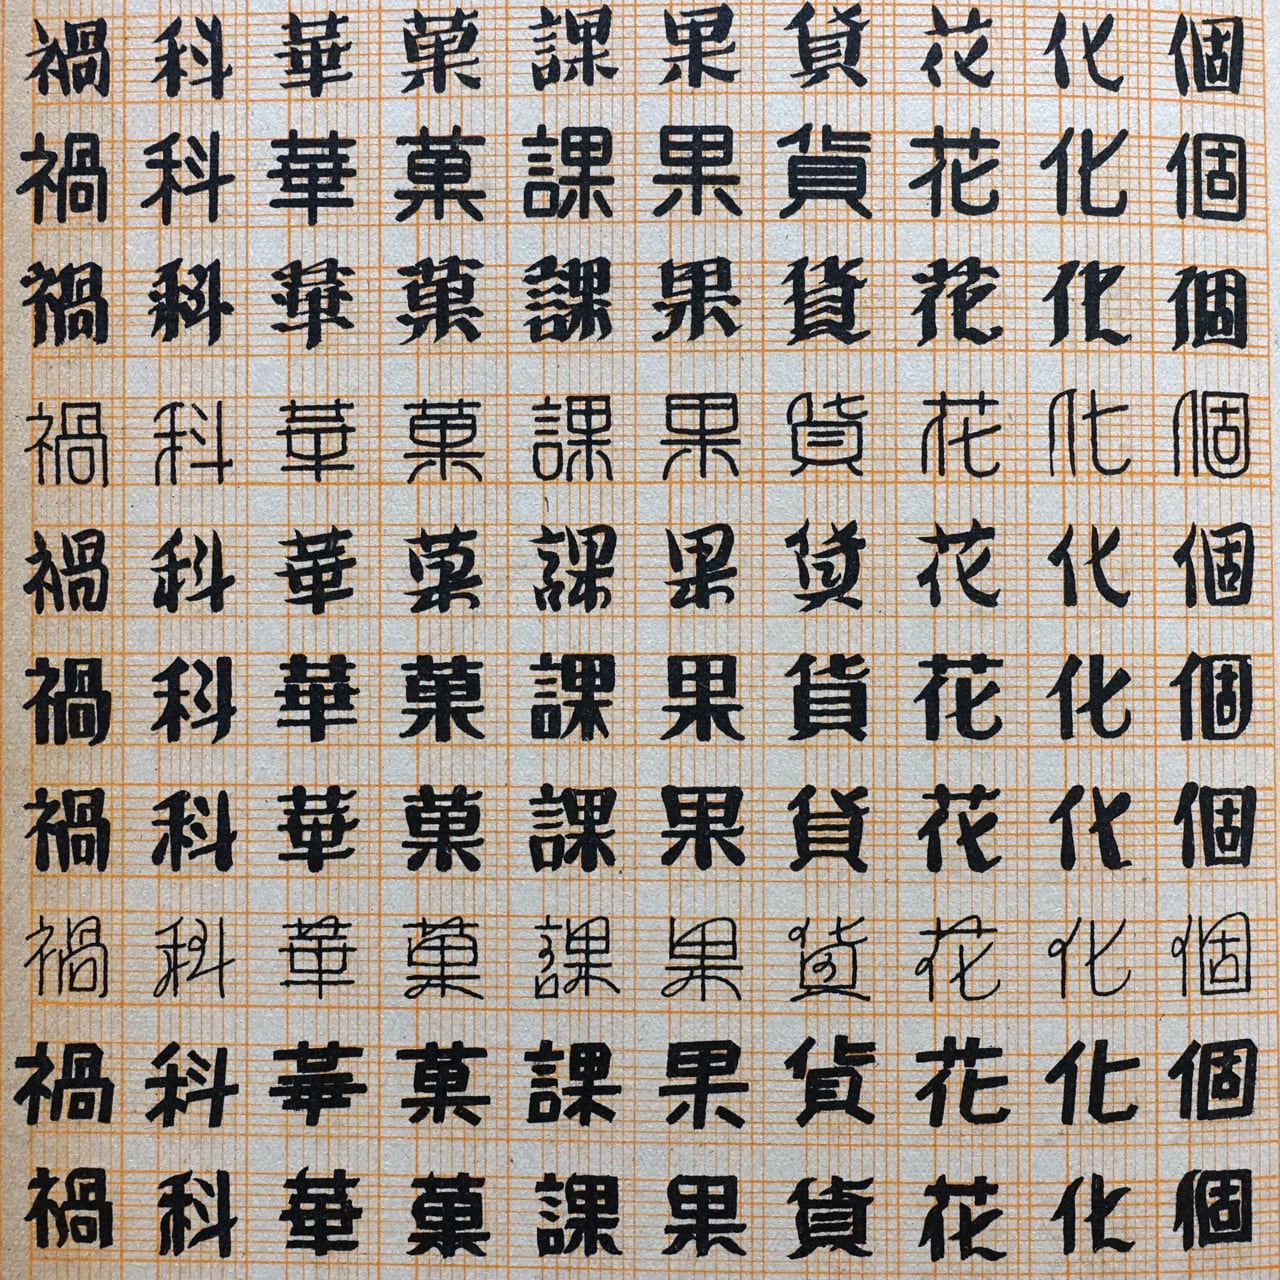 個個個個個個個個個個
化化化化化化化化化化
花花花花花花花花花花
貨貨貨貨貨貨貨貨貨貨
果果果果果果果果果果
課課課課課課課課課課
菓菓菓菓菓菓菓菓菓菓
華華華華華華華華華華
科科科科科科科科科科
禍禍禍禍禍禍禍禍禍禍